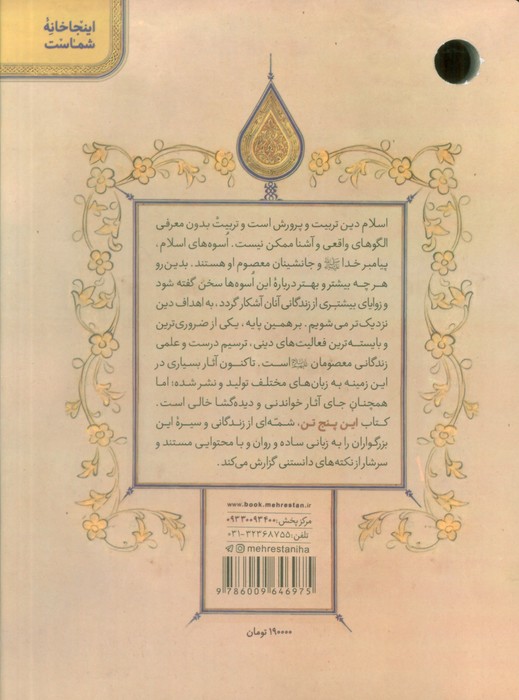 اینجاخانهٔ
شماست
اسلام دین تربیت و پرورش است و تربیتْ بدون معرفی
الگوهای واقعی و آشنا ممکن نیست. اُسوه‌های اسلام،
پیامبر خدا ﷺ و جانشینان معصوم او هستند. بدین‌رو
هر چه بیشتر و بهتر دربارهٔ این اُسوه‌ها سخن گفته شود
و زوایای بیشتری از زندگانی آنان آشکار گردد، به اهداف دین
نزدیک‌تر می‌شویم. بر همین پایه، یکی از ضروری‌ترین
و بایسته‌ترین فعالیت‌های دینی، ترسیم درست و علمی
زندگانی معصومان است. تاکنون آثار بسیاری در
این زمینه به زبان‌های مختلف تولید و نشر شده؛ اما
همچنان جای آثار خواندنی و دیده‌گشا خالی است.
کتاب این پنج تن، شمّه‌ای از زندگانی و سیرهٔ این
بزرگواران را به زبانی ساده و روان و با محتوایی مستند و
سرشار از نکته‌های دانستنی گزارش می‌کند.
www.book.mehrestan.ir
مرکز پخش: ۰۹۳۳۰۰۹۳۴۰۰
تلفن: ۰۳۱-۳۲۳۶۸۷۵۵
mehrestaniha
9 786009 646975
۱۹۰۰۰۰ تومان